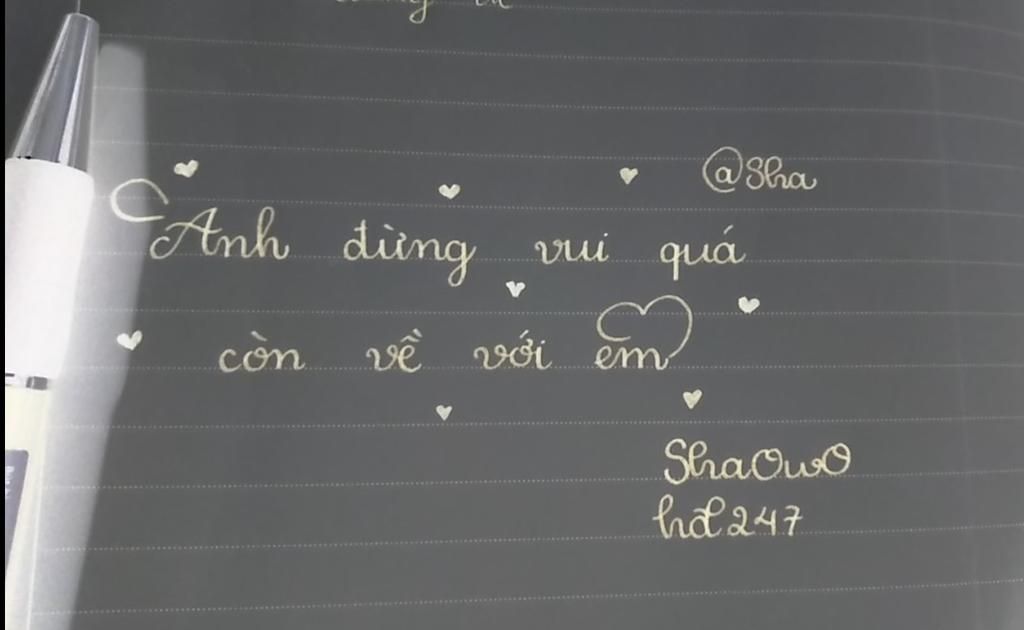 @Sha
Anh đừng vui quá
còn về với em
ShaOwO
hd247